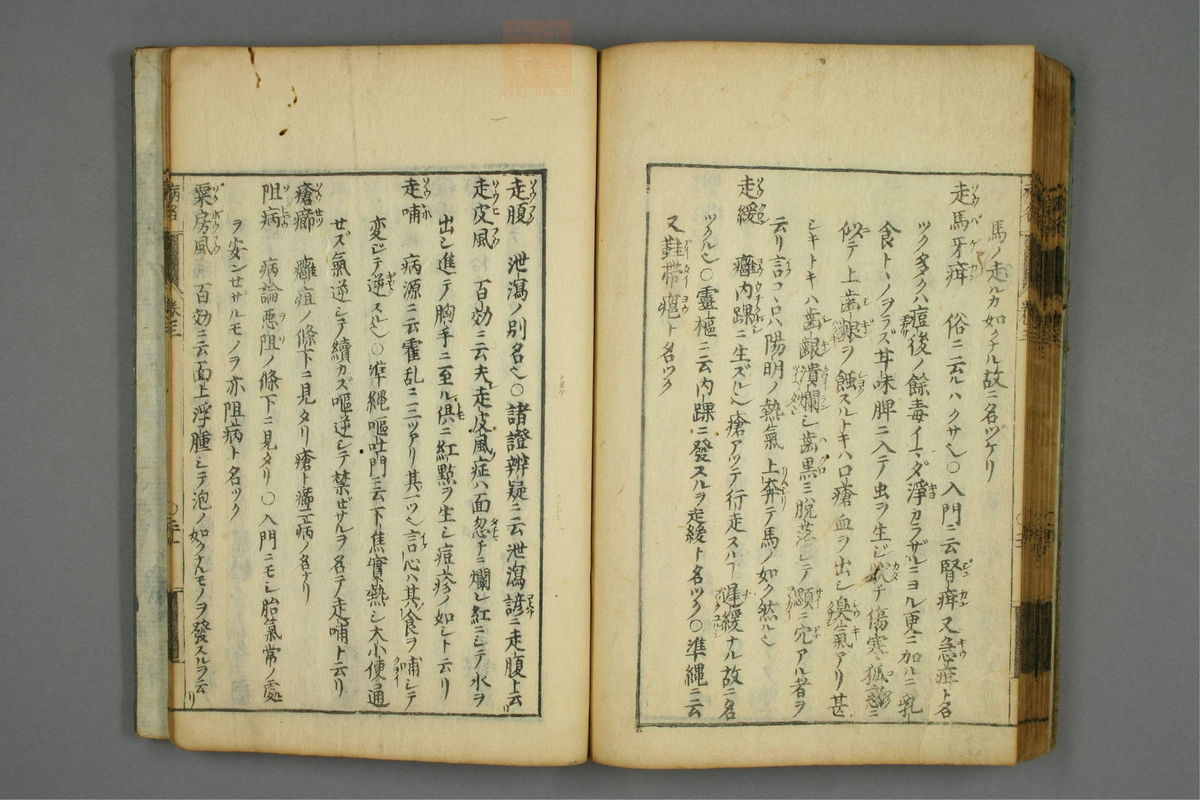 馬ノ走ルカ如クナル故ニ名ヅケリ
走馬牙疳 俗ニ云ルハクサ也○入門ニ云腎疳又急疳ト名
ツク多クハ痘後ノ餘毒イマダ淨カラザルニヨル更ニ加ルニ乳
食トヽノヲラズ甘味脾ニ入テ虫ヲ生ジ傷寒狐惑ニ
似テ上歯齦ヲ蝕スルトキハ口瘡血ヲ出シ臭氣アリ甚
シキトキハ歯齦潰爛シ歯黒ミ脱落シテ顋ニ穴アル者ヲ
云リ言コヽロハ陽明ノ熱氣上奔テ馬ノ如ク然ル也
走緩 内踝ニ生ズル也瘡アツテ行走スルヿ遅緩ナル故ニ名
ツクル也○靈樞ニ云内踝ニ發スルヲ走緩ト名ツク○準縄ニ云
又鞋帶疽ト名ツク
走腹 泄瀉ノ別名也○諸證辨疑ニ云泄瀉諺ニ走腹上云リ
走皮風 百効ニ云夫走皮風症ハ面忽チニ爛レ紅ニシテ水ヲ
出シ進テ胸手ニ至ル倶ニ紅點ヲ生シ痘疹ノ如シト云リ
走哺 病源ニ云霍乱ニ三ツアリ其一ツ也言心ハ其食ヲ哺シテ
変ジテ逆スル也○準縄嘔吐門ニ云下焦實熱シ大小便通
せズ氣逆シテ續カズ嘔逆シテ禁ゼザルヲ名テ走哺ト云リ
瘡癤 癰疽ノ條下ニ見タリ瘡ト癤二病ノ名ナリ
阻病 病論悪阻ノ條下ニ見タリ○入門ニモシ胎氣常ノ處
ヲ安ンせサルモノヲ亦阻病ト名ツク
粟房風 百効ニ云面上浮腫シテ泡ノ如クナルモノヲ發スルヲ云リ